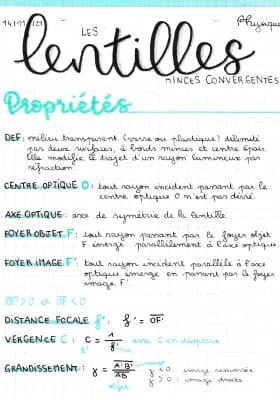 14/11/21
Physique
LES
lentilles
MINCES CONVERGENTES
Propriétés
DEF : milieu transparent (verre ou plastique) délimité
par deux surfaces, à bords minces et centre épais.
Elle modifie le trajet d'un rayon lumineux par
réfraction
CENTRE OPTIQUE O : tout rayon incident passant par le
centre optique O n'est pas dévié.
AXE OPTIQUE : axe de symétrie de la lentille.
FOYER OBJET F : tout rayon passant par le foyer objet
F émerge parallèlement à l'axe optique.
FOYER IMAGE F' : tout rayon incident parallèle à l'axe
optique émerge en passant par le foyer
image F'.
OF' > 0 et OF < 0
DISTANCE FOCALE f' : f' = OF'
VERGENCE C : C = 1/f' avec C en dioptrie
GRANDISSEMENT : γ = A'B'/AB
image
objet
γ < 0 image renversée
γ > 0 : image droite